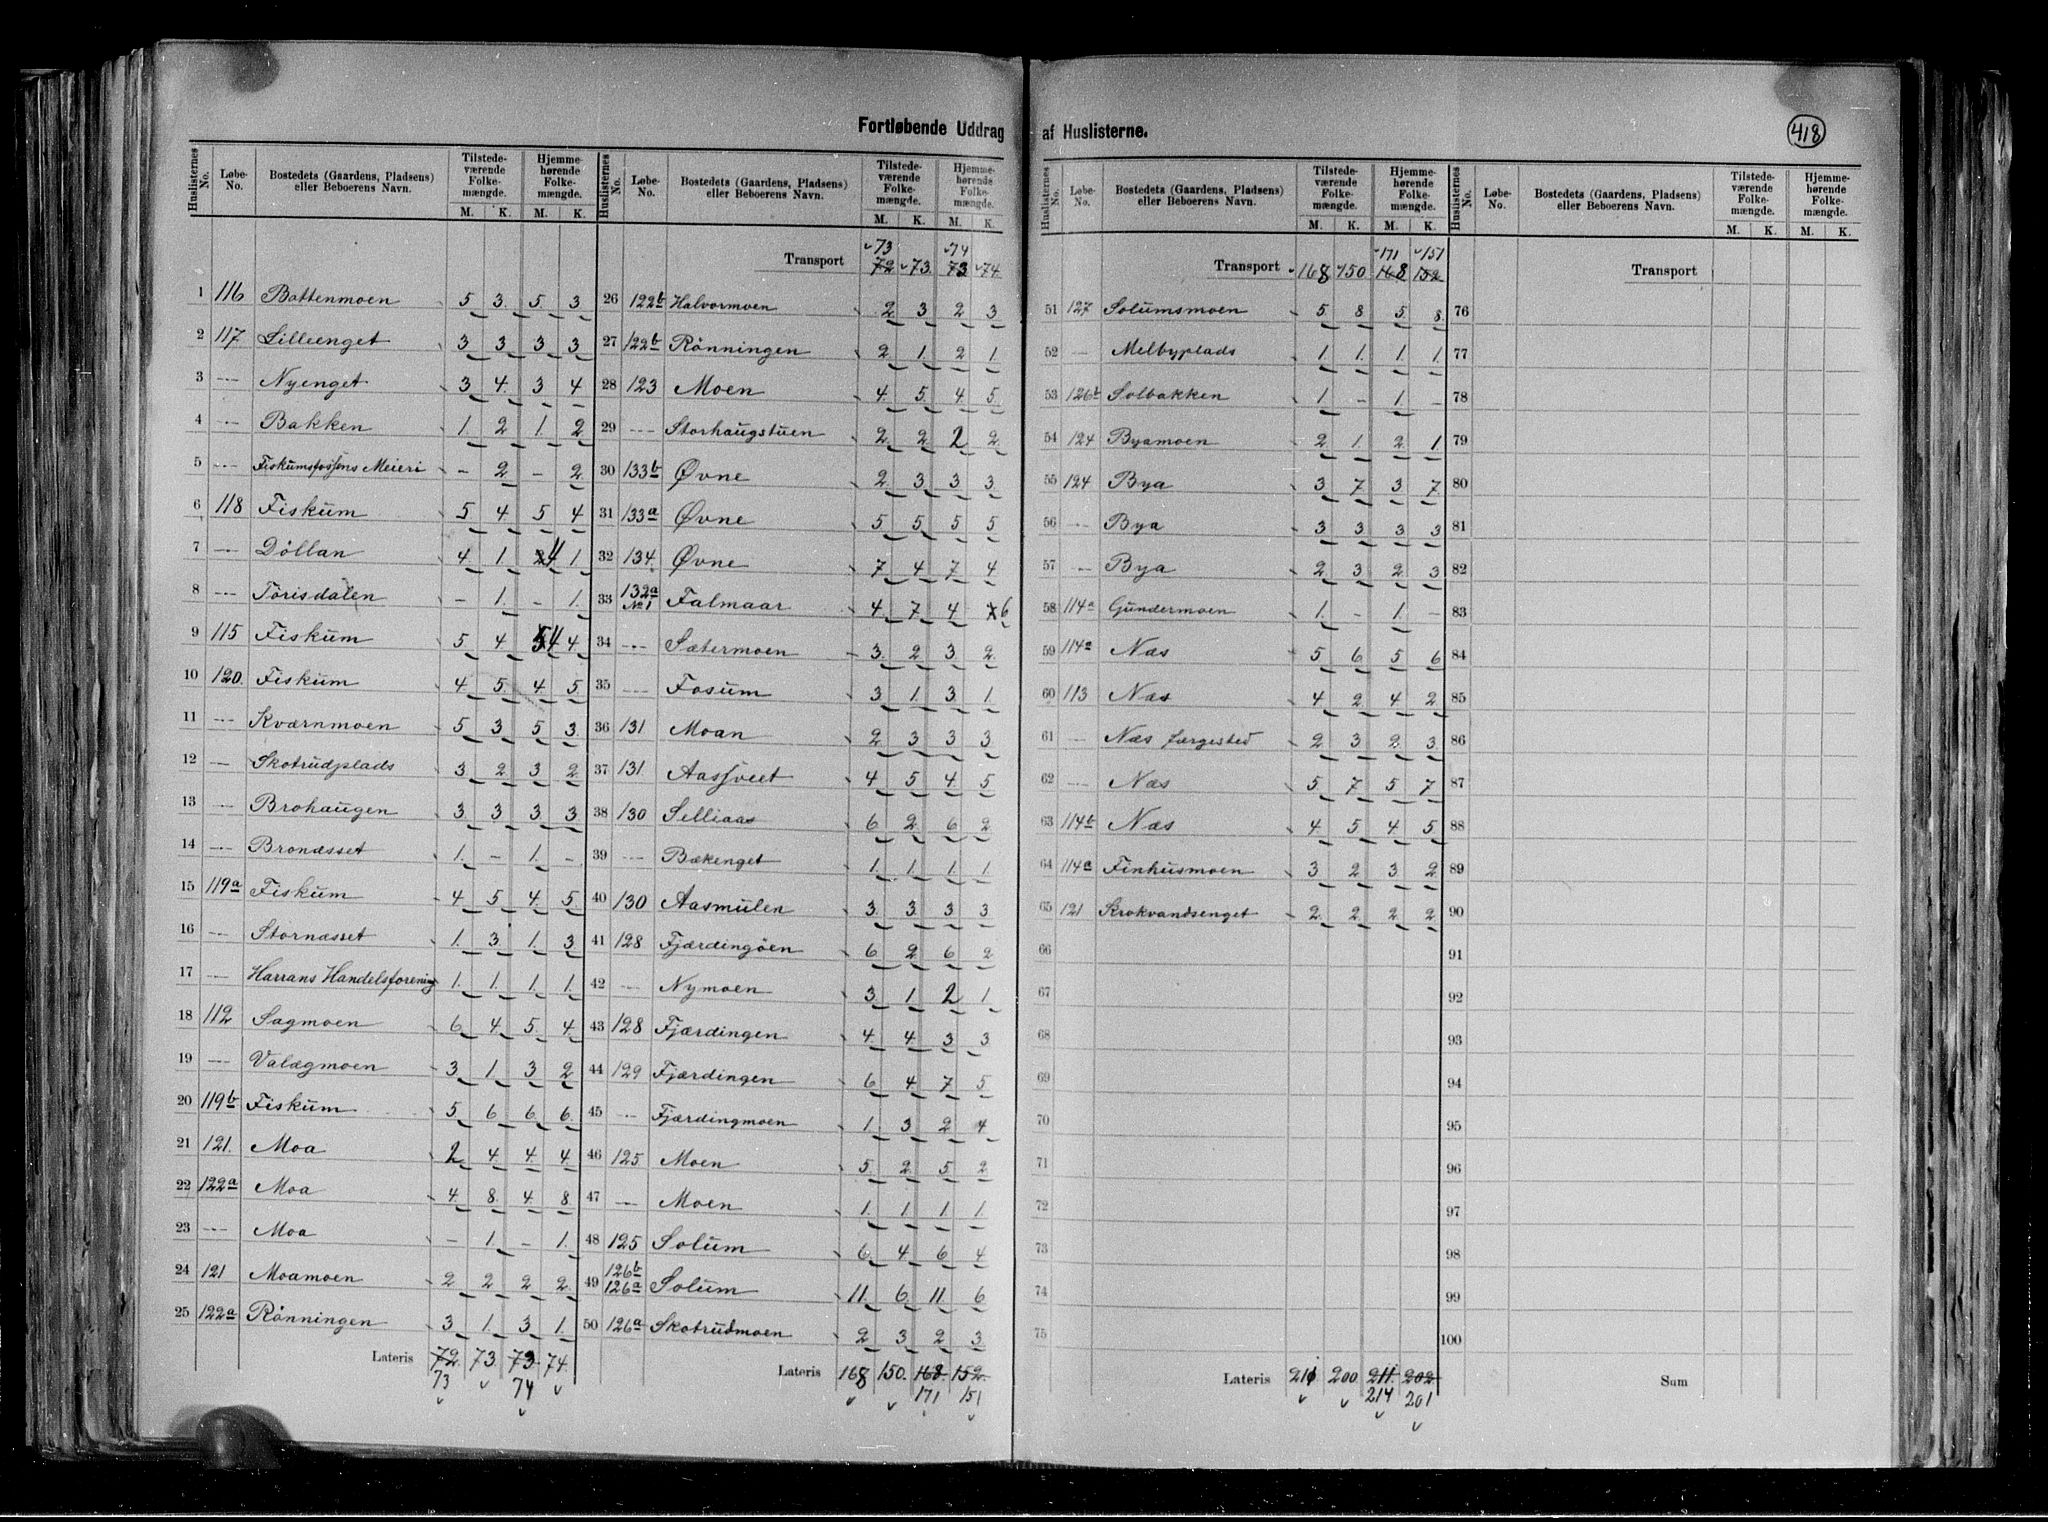 Fortløbende Uddrag af Huslisterne.
418
Huslisternes No. | Løbe-No. | Bostedets (Gaardens, Pladsens) eller Beboerens Navn. | Tilstedeværende Folkemængde. M. K. | Hjemmehørende Folkemængde. M. K.
1 116 Bottenmoen 5 3 5 3
2 117 Lilleenget 3 3 3 3
3 --- Nyenget 3 4 3 4
4 --- Bakken 1 2 1 2
5 --- Fiskumsfossens Meieri - 2 - 2
6 118 Fiskum 5 4 5 4
7 --- Döllan 4 1 4 1
8 --- Törisdalen - 1 - 1
9 115 Fiskum 5 4 4 4
10 120 Fiskum 4 5 4 5
11 --- Kværnmoen 5 3 5 3
12 --- Skotrudplads 3 2 3 2
13 --- Brohaugen 3 3 3 3
14 --- Bronæsset 1 - 1 -
15 119a Fiskum 4 5 4 5
16 --- Stornæsset 1 3 1 3
17 --- Harrans Handelsforening 1 1 1 1
18 112 Sagmoen 6 4 5 4
19 --- Valægmoen 3 1 3 2
20 119b Fiskum 5 6 6 6
21 121 Moa 2 4 4 4
22 122a Moa 4 8 4 8
23 --- Moa - 1 - 1
24 121 Moamoen 2 2 2 2
25 122a Rönningen 3 1 3 1
Lateris 72 73 73 74
73 74
Huslisternes No. | Løbe-No. | Bostedets (Gaardens, Pladsens) eller Beboerens Navn. | Tilstedeværende Folkemængde. M. K. | Hjemmehørende Folkemængde. M. K.
73 74
Transport 72 73 73 74
26 122b Halvormoen 2 3 2 3
27 122b Rönningen 2 1 2 1
28 123 Moen 4 5 4 5
29 --- Storhaugstuen 2 2 2 2
30 133b Øvne 2 3 3 3
31 133a Øvne 5 5 5 5
32 134 Øvne 7 4 7 4
33 132a No 1 Falmaar 4 7 4 6
34 --- Sætermoen 3 2 3 2
35 --- Fosum 3 1 3 1
36 131 Moan 2 3 3 3
37 131 Aassveet 4 5 4 5
38 130 Selliaas 6 2 6 2
39 --- Bækenget 1 1 1 1
40 130 Aasmulen 3 3 3 3
41 128 Fjærdingöen 6 2 6 2
42 --- Nymoen 3 1 2 1
43 128 Fjærdingen 4 4 3 3
44 129 Fjærdingen 6 4 7 5
45 --- Fjærdingmoen 1 3 2 4
46 125 Moen 5 2 5 2
47 --- Moen 1 1 1 1
48 125 Solum 6 4 6 4
49 126b 126a Solum 11 6 11 6
50 126a Skotrudmoen 2 3 2 3
Lateris 168 150 168 152
171 151
Huslisternes No. | Løbe-No. | Bostedets (Gaardens, Pladsens) eller Beboerens Navn. | Tilstedeværende Folkemængde. M. K. | Hjemmehørende Folkemængde. M. K.
171 151
Transport 168 150 168 152
51 127 Solumsmoen 5 8 5 8
52 --- Melbyplads 1 1 1 1
53 126b Solbakken 1 - 1 -
54 124 Byamoen 2 1 2 1
55 124 Bya 3 7 3 7
56 --- Bya 3 3 3 3
57 --- Bya 2 3 2 3
58 114a Gundermoen 1 - 1 -
59 114a Næs 5 6 5 6
60 113 Næs 4 2 4 2
61 --- Næs færgested 2 3 2 3
62 --- Næs 5 7 5 7
63 114b Næs 4 5 4 5
64 114a Finhusmoen 3 2 3 2
65 121 Krokvandsenget 2 2 2 2
66
67
68
69
70
71
72
73
74
75
Lateris 211 200 211 202
214 201
Huslisternes No. | Løbe-No. | Bostedets (Gaardens, Pladsens) eller Beboerens Navn. | Tilstedeværende Folkemængde. M. K. | Hjemmehørende Folkemængde. M. K.
Transport
76
77
78
79
80
81
82
83
84
85
86
87
88
89
90
91
92
93
94
95
96
97
98
99
100
Sum